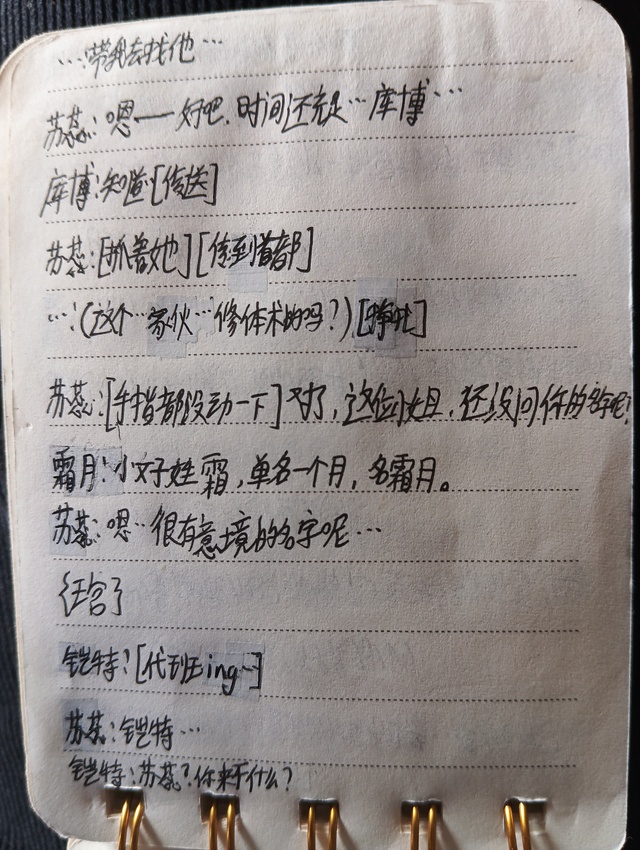 …带我去找他…
苏蕊:嗯——好吧,时间还充足…库博…
库博:知道[传送]
苏蕊:[抓着她][传到首都]
…:(这个…家伙…修体术的吗?)[挣扎]
苏蕊:[手指都没动一下]对了,这位小姐,还没问你的名字呢?
霜月:小女子姓霜,单名一个月,名霜月。
苏蕊:嗯…很有意境的名字呢…
{王宫}
铠特:[代班ing…]
苏蕊:铠特…
铠特:苏蕊?你来干什么?